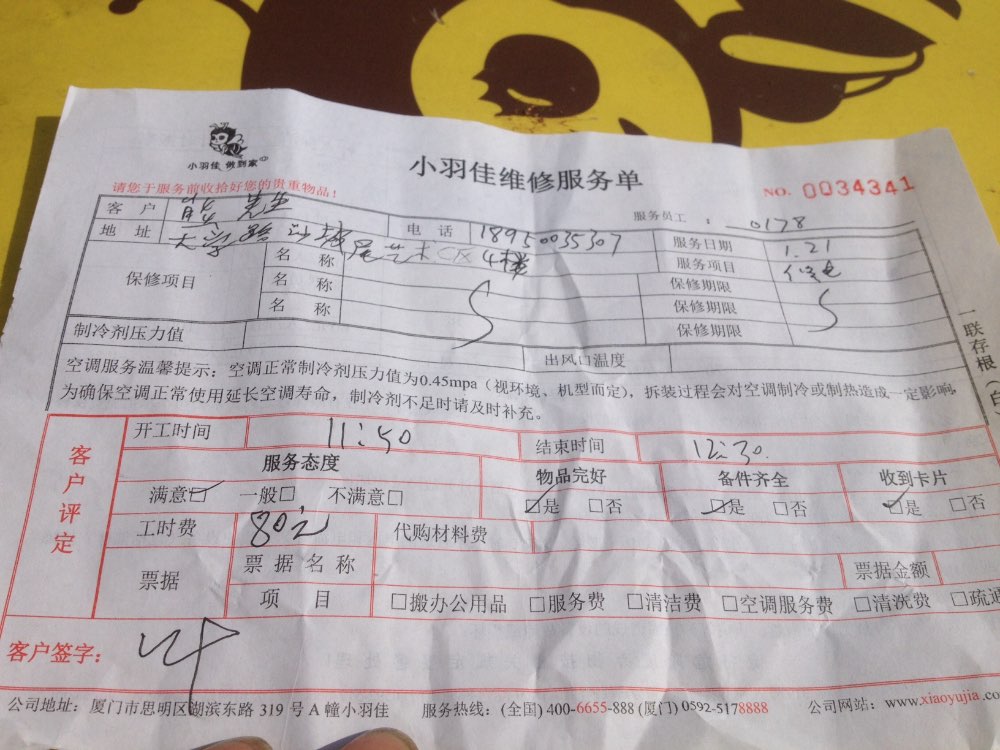 小羽佳 做到家
小羽佳维修服务单
请您于服务前收拾好您的贵重物品!
NO. 0034341
服务员工 : 0178
客户 先生 电话 18950035307 服务日期 1.21
地址 大学路沙坡尾艺术C区4楼 服务项目
保修项目 名称 保修期限
名称 保修期限
名称 保修期限
制冷剂压力值 出风口温度
空调服务温馨提示:空调正常制冷剂压力值为0.45mpa(视环境、机型而定),拆装过程会对空调制冷或制热造成一定影响,
为确保空调正常使用延长空调寿命,制冷剂不足时请及时补充。
一联存根(白
客户评定
开工时间 11:50 结束时间 12:30.
服务态度 物品完好 备件齐全 收到卡片
满意☑ 一般□ 不满意□ ☑是 □否 ☑是 □否 ☑是 □否
工时费 80元 代购材料费
票据 票据名称 票据金额
项目 □搬办公用品 □服务费 □清洁费 □空调服务费 □清洗费 □疏通
客户签字:
公司地址:厦门市思明区湖滨东路 319 号 A 幢小羽佳 服务热线:(全国) 400-6655-888 (厦门) 0592-5178888 公司网站:www.xiaoyujia.